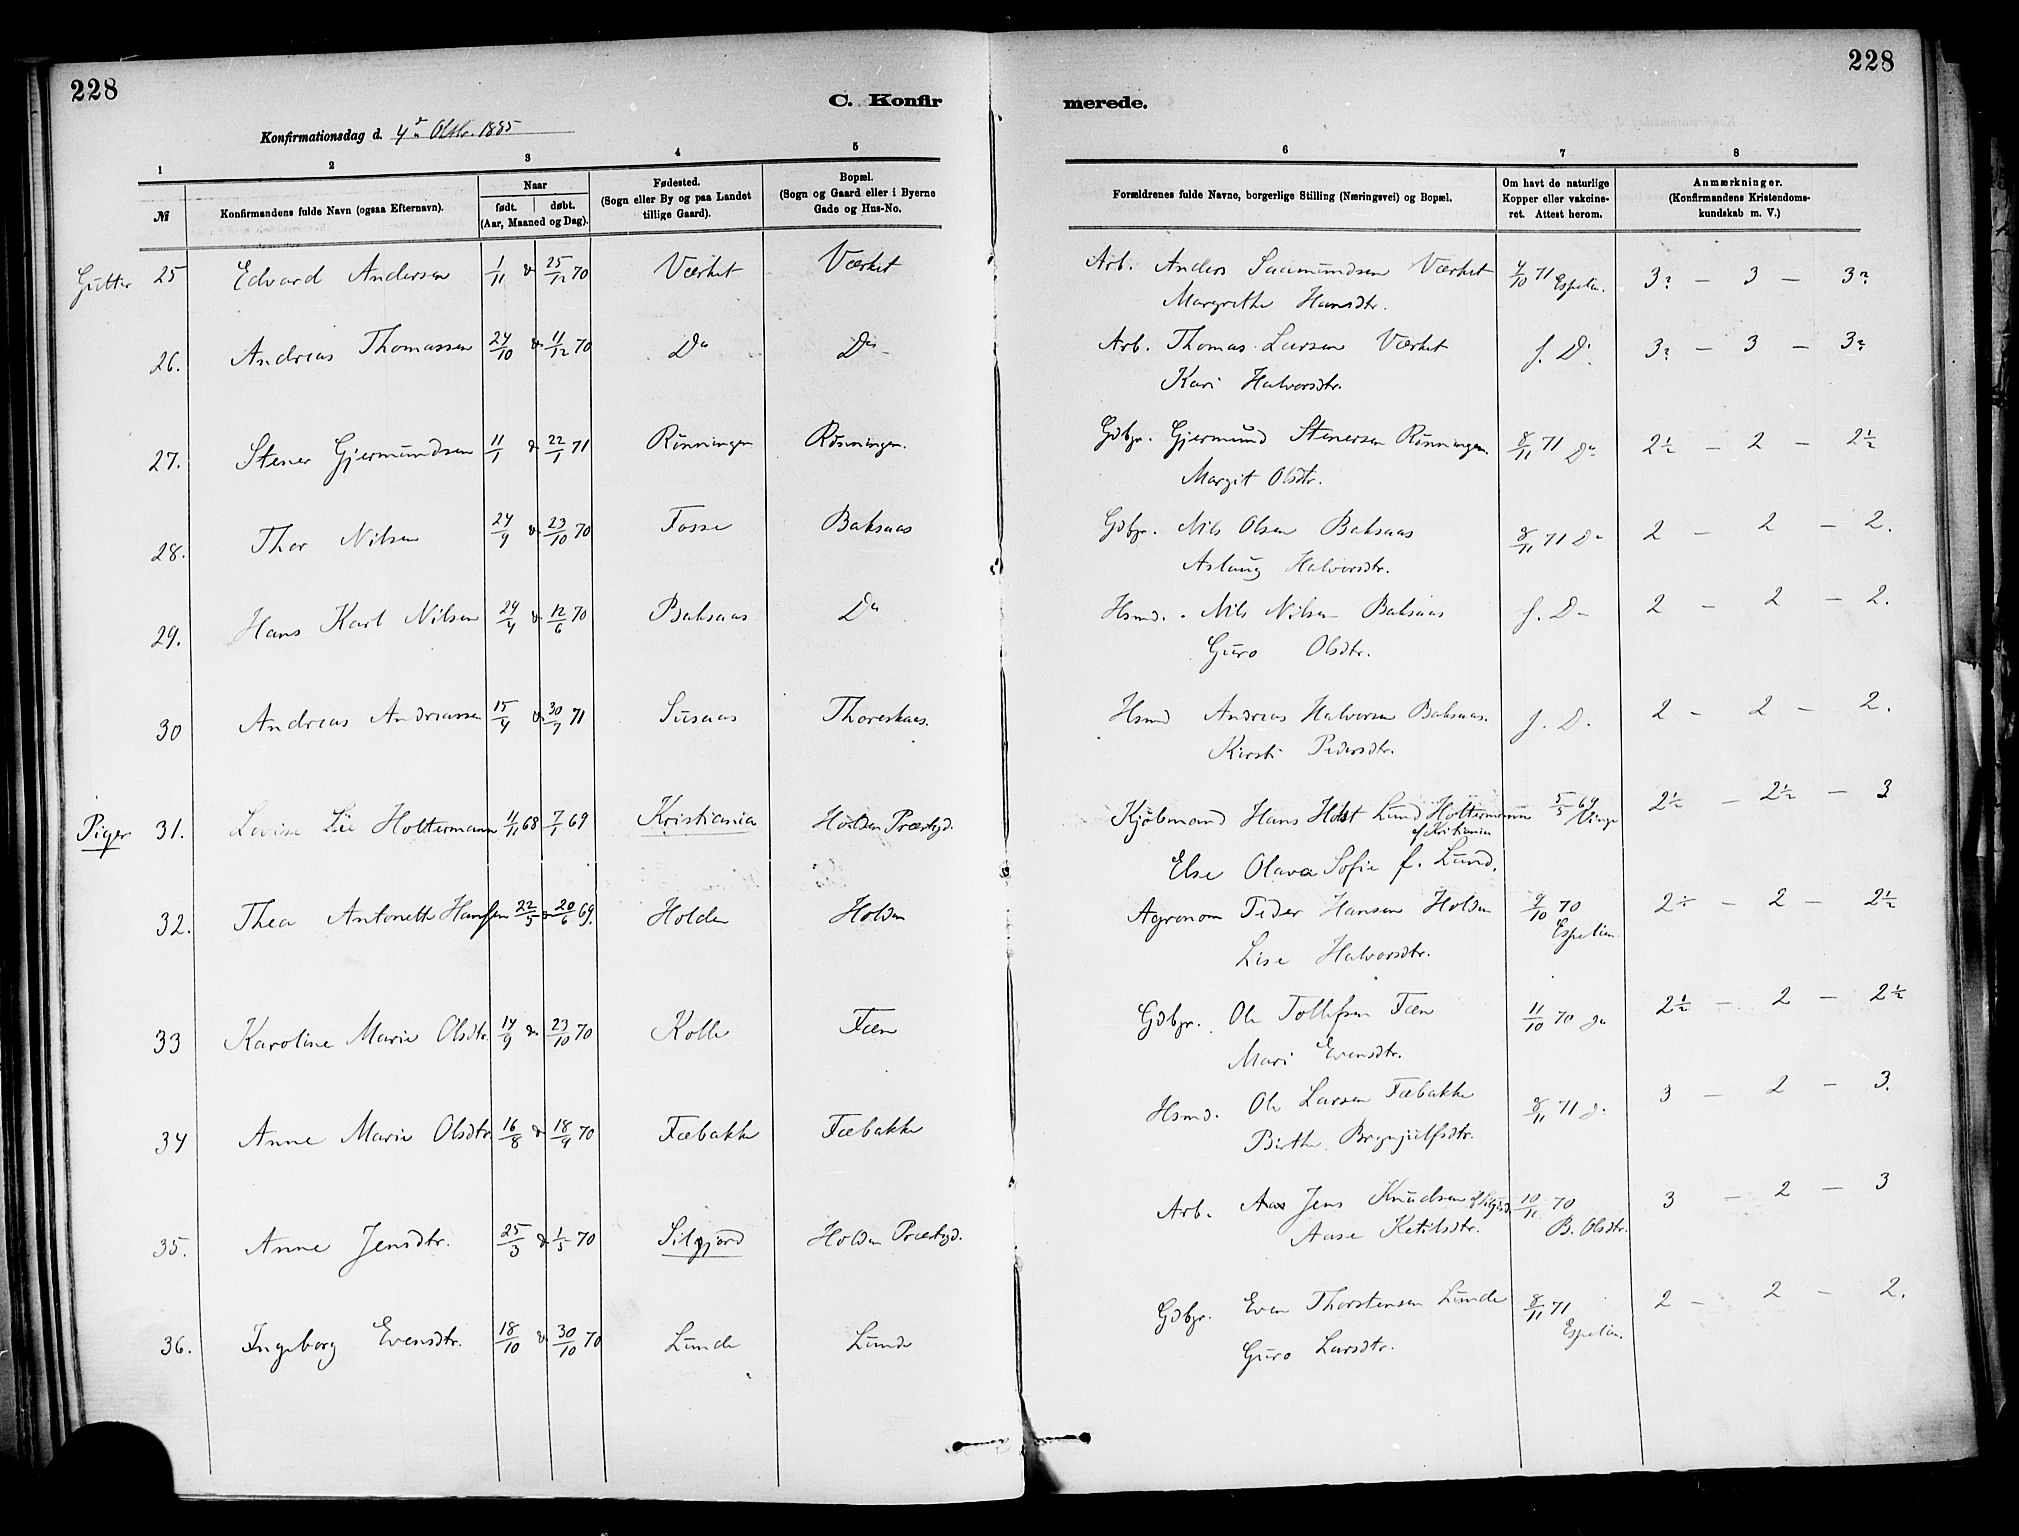 228
228
C. Konfir
merede.
Konfirmationsdag d. 4de Oktbr. 1885
1 2 3 4 5 6 7 8
№
Konfirmandens fulde Navn (ogsaa Efternavn).
Naar
født. døbt.
(Aar, Maaned og Dag).
Fødested.
(Sogn eller By og paa Landet
tillige Gaard).
Bopæl.
(Sogn og Gaard eller i Byerne
Gade og Hus-No.
Forældrenes fulde Navne, borgerlige Stilling (Næringsvei) og Bopæl.
Om havt de naturlige
Kopper eller vakcine-
ret. Attest herom.
Anmærkninger.
(Konfirmandens Kristendoms-
kundskab m. V.)
Gutter 25 Edvard Andersen 1/11 & 25/12 70 Værket Værket Arb. Anders Saamundsen Værket 4/10 71 Espelin. 3? - 3 - 3?
Margrethe Hansdtr.
26. Andreas Thomassen 24/10 & 11/12 70 Do Do Arb. Thomas Larsen Værket f. Do 3? - 3 - 3?
Kari Halvorsdtr.
27. Stener Gjermundsen 11/1 & 22/1 71 Rønningen Rønningen. Gdbgr. Gjermund Stenersen Rønningen. 8/11 71 Do 2½ - 2 - 2½
Margit Olsdtr.
28. Thor Nilsen 24/9 & 23/10 70 Fosse Baksaas Gdbgr. Nils Olsen Baksaas 8/11 71 Do 2 - 2 - 2.
Aslaug Halvorsdtr.
29. Hans Karl Nilsen 24/4 & 12/6 70 Baksaas Do Hsmd. Nils Nilsen Baksaas f. Do 2 - 2 - 2.
Guro Olsdtr.
30 Andreas Andreassen 15/4 & 30/7 71 Susaas Thoreskaas. Hsmd Andreas Halvorsen Baksaas. f. D. 2 - 2 - 2.
Kirsti Pedersdtr.
Piger 31. Lovise Lie Holtermann 4/11 68 7/1 69 Kristiania Holden Præstgd. Kjøbmand Hans Holst Lund Holtermann 5/5 69 Vinge 2½ - 2½ - 3
af Kristiania
Else Olava Sofie f. Lund.
32. Thea Antonette Hansen 22/5 & 20/6 69. Holden Holden Agronom Peder Hansen Holden 9/10 70 2÷ - 2 - 2½
Espelien.
Lise Halvorsdtr.
33 Karoline Marie Olsdtr. 14/9 & 23/10 70 Kolle Fæn Gdbgr. Ole Tollefsen Fæn 11/10 70 do 2½ - 2 - 2½
Mari Evensdtr.
34 Anne Marie Olsdtr 16/8 & 18/9 70 Fæbakke Fæbakke Hsmd. Ole Larsen Fæbakke 8/11 71 do 3 - 2 - 3.
Birthe Brynjulfsdtr.
35. Anne Jensdtr. 25/3 & 1/5 70 Silgjord Holden Præstgd. Arb. Jens Knudsen af Silgjord 10/11 70 3 - 2 - 3
Aase Ketilsdtr. B. Olsdtr.
36. Ingeborg Evensdtr. 18/10 & 30/10 70 Lunde Lunde Gdbgr. Even Thorstensen Lunde 8/11 71 2 - 2 - 2.
Espelien.
Guro Larsdtr.